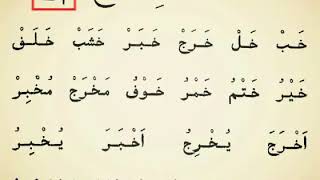 خَبْ خَلْ خَرَجْ خَبَرْ خَشَبْ خَلَقْ
خَيْرُ خَتْمُ خَمْرُ خَوْفُ مَخْرَجْ مُخْبِرْ
اَخْرَجَ يُخْرِجُ اَخْبَرَ يُخْبِرُ